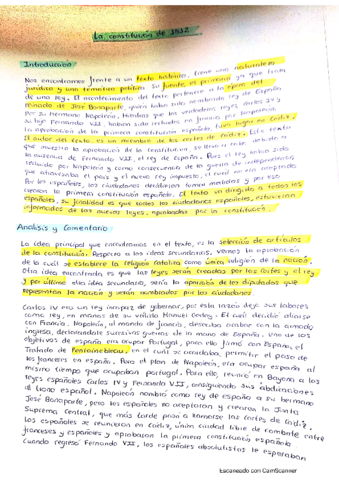 La constitución de 1812
Introducción
Nos encontramos frente a un texto histórico, tiene una naturaleza
jurídica y una temática política. Su fuente, es primaria ya que trata
de una ley. El acontecimiento del texto pertenece a la época del
reinado de José Bonaparte, quien había sido nombrado rey de España
por su hermano Napoleón. Mientras que los verdaderos reyes Carlos IV y
su hijo Fernando VII, habían sido
la aprobación de la primera constitución española, tuvo lugar en Cádiz.
El autor del texto, es un miembro de las cortes de Cádiz. Este texto
que muestra la aprobación de la constitución, se llevó a cabo, debido a
la ausencia de Fernando VII, el rey de España. Pues el rey había sido
por Napoleón y como consecuencia de la guerra de independencia
que atravesaba el país y el nuevo rey impuesto, el cual no era aceptado
por los españoles, los ciudadanos decidieron tomar medidas y por eso
crearon la primera constitución española. El texto va dirigido a todos los
españoles, su finalidad es que todos los ciudadanos españoles, estuvieran
informados de las nuevas leyes, aprobadas por la constitución.
Análisis y Comentario
La idea principal que encontramos en el texto, es la selección de artículos
de la constitución. Respecto a las ideas secundarias, vemos la aprobación
de la cual se establece la religión católica como única religión de la nación.
Otra idea encontrada, es que las leyes serán creadas por las cortes y el rey
y por último otra idea secundaria, sería la aparición de los diputados que
representan la nación y serán nombrados por los ciudadanos
Carlos IV era un rey incapaz de gobernar, por esta razón dejó sus labores
como rey, en manos de su valido Manuel Godoy. El cual decidió aliarse
con Francia. Napoleón, al mando de Francia, deseaba acabar con la armada
inglesa, declarándole sucesivas guerras de la mano de España. Uno de sus
objetivos de España era ocupar Portugal, para ello firmó con España, el
Tratado de Fontainebleau, en el cual se acordaba, permitir el paso de
los franceses en España. Pero el plan de Napoleón, era ocupar España al
mismo tiempo que ocupaban Portugal. Para ello, reunió en Bayona a los
reyes españoles Carlos IV y Fernando VII, consiguiendo sus abdicaciones
al trono español. Napoleón nombró como rey de España a su hermano
José Bonaparte, pero los españoles no aceptaron y crearon la Junta
Suprema Central, que más tarde pasó a llamarse las cortes de Cádiz.
Los españoles se reunieron en Cádiz, única ciudad libre de combate entre
franceses y españoles y aprobaron la primera constitución española
Cuando regresó Fernando VII, los españoles absolutistas le esperaban
Escaneado con CamScanner